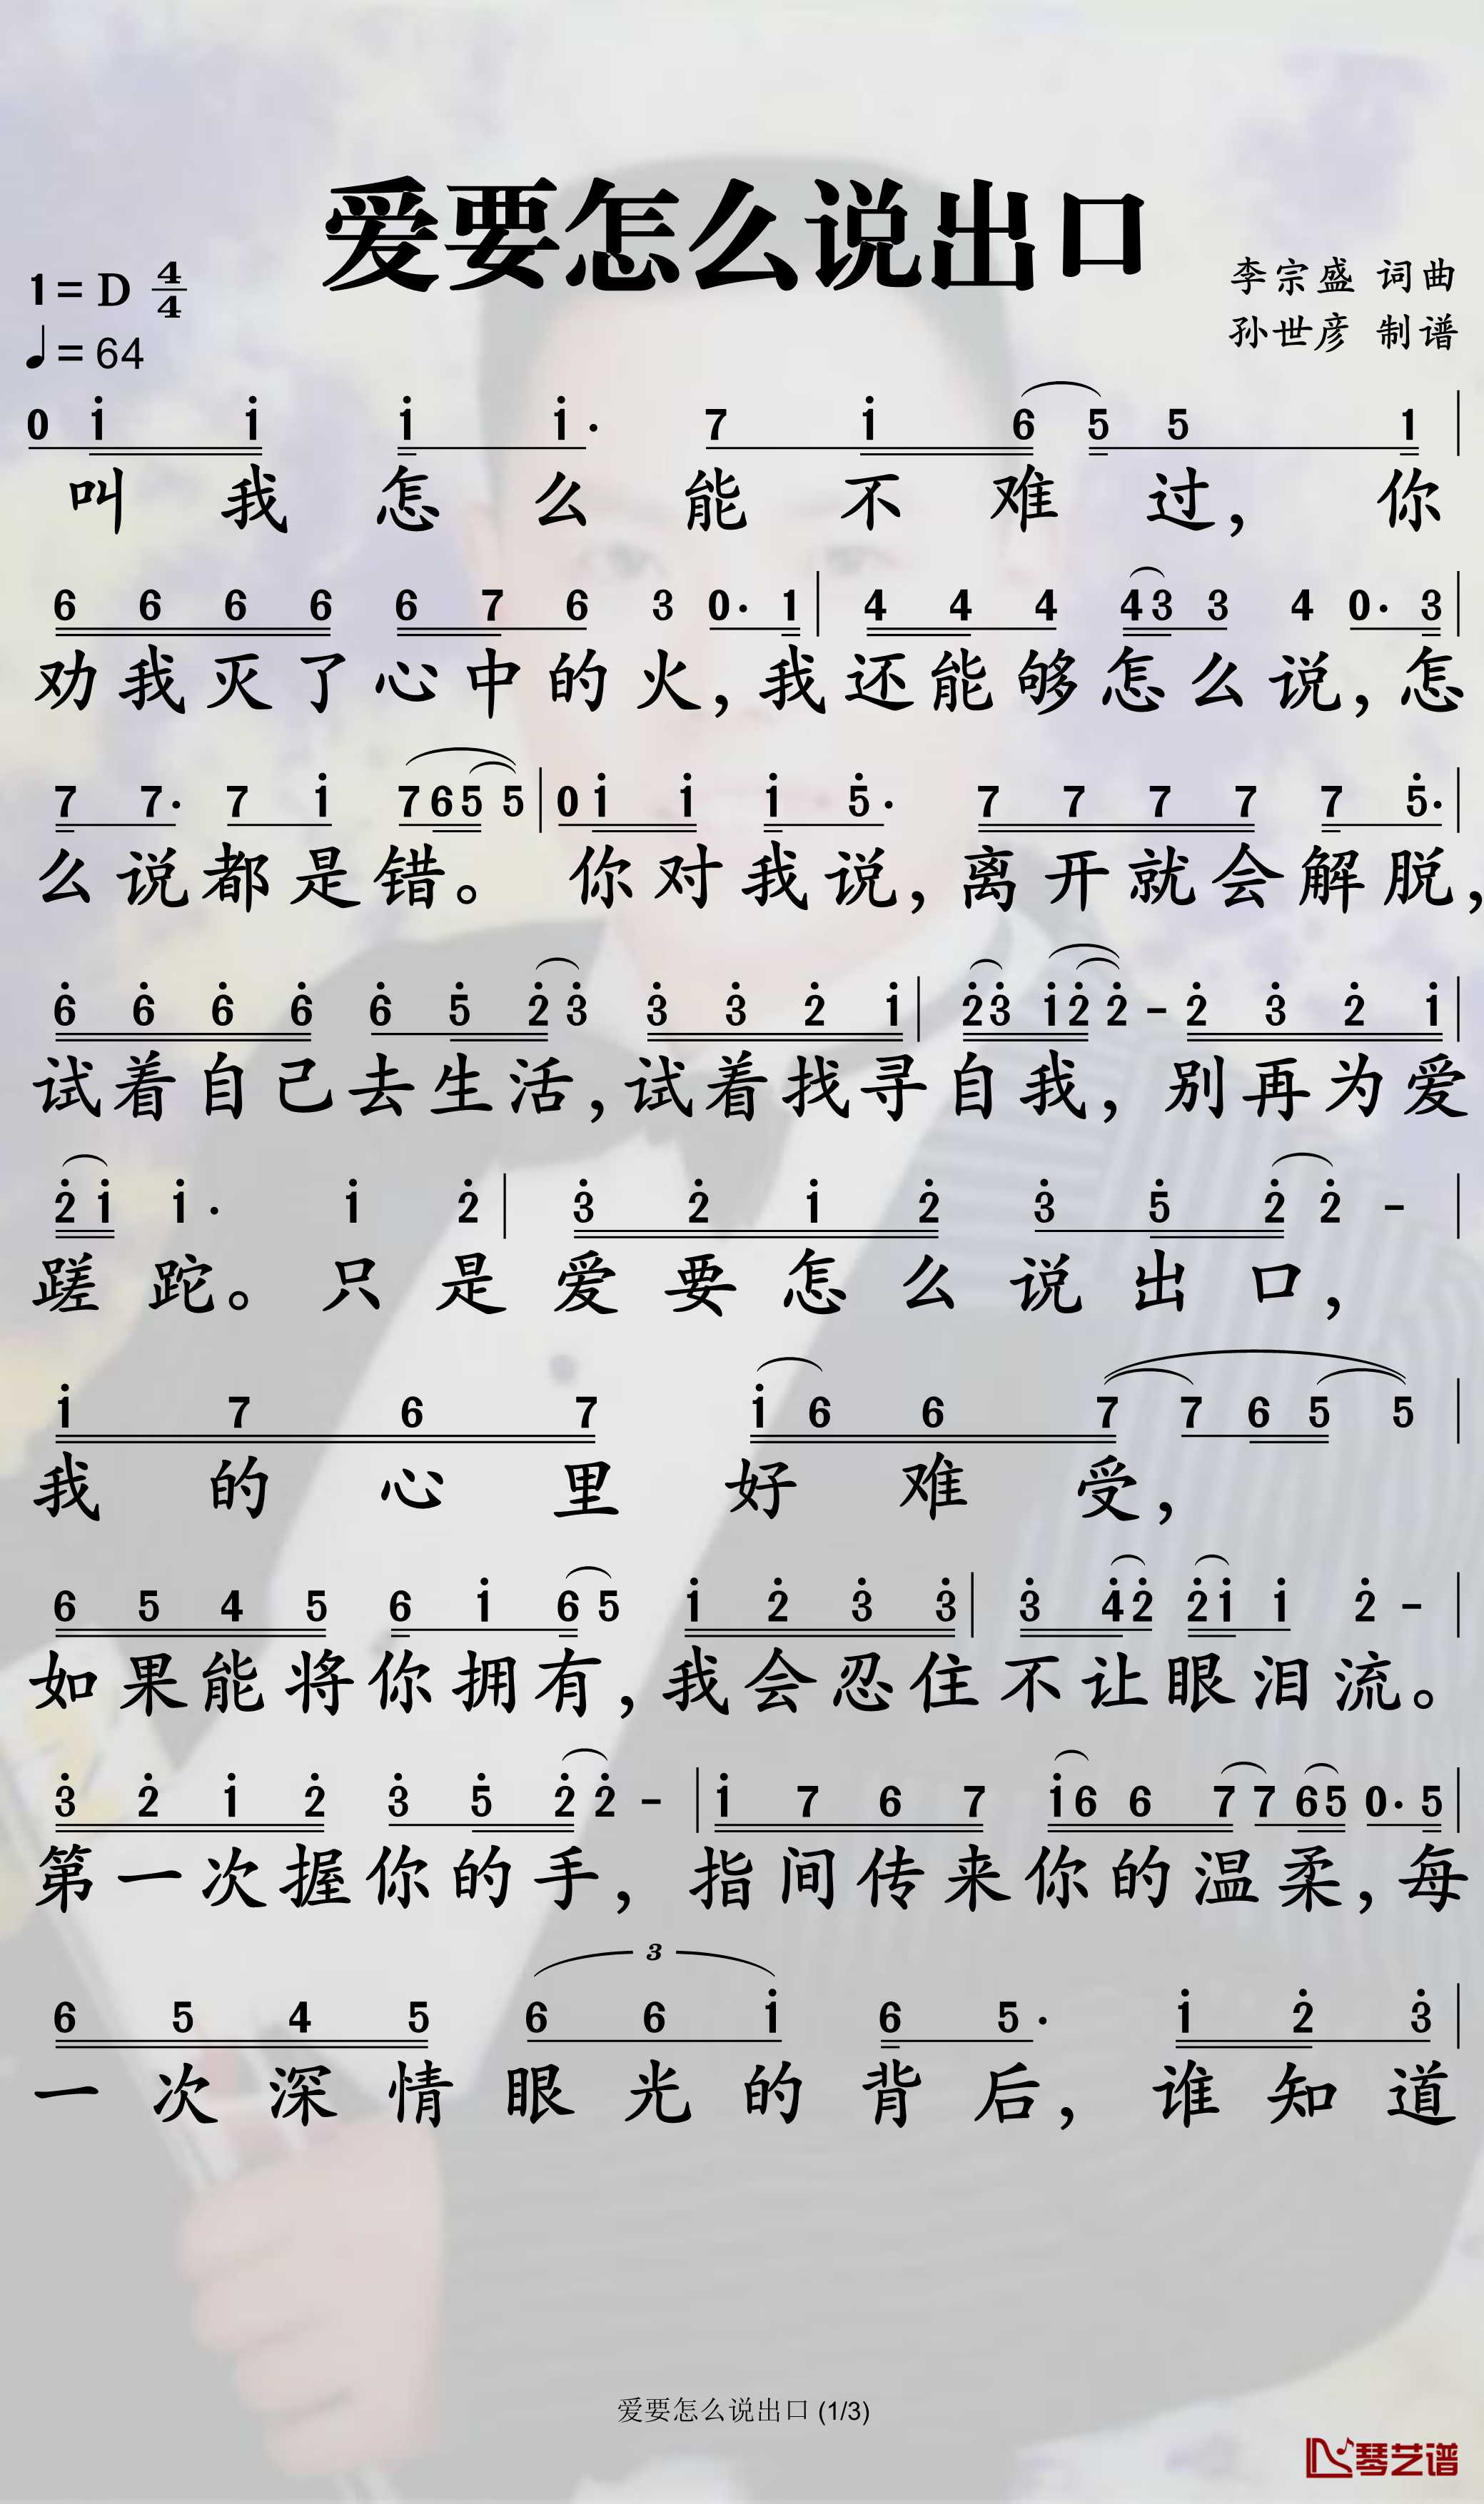 爱要怎么说出口
1=D 4/4
李宗盛 词曲
♩=64
孙世彦 制谱
0 i̇ i̇ i̇ i̇· 7 i̇ 6 5 5 1 |
叫我怎么能不难过，你
6 6 6 6 6 7 6 3 0· 1 | 4 4 4 4 3 3 4 0· 3 |
劝我灭了心中的火，我还能够怎么说，怎
7 7· 7 i̇ 7 6 5 5 | 0 i̇ i̇ i̇ 5̇· 7 7 7 7 7 5̇· |
么说都是错。 你对我说，离开就会解脱，
6̇ 6̇ 6̇ 6̇ 6̇ 5̇ 2̇ 3̇ 3̇ 3̇ 2̇ i̇ | 2̇ 3̇ i̇ 2̇ 2̇ - 2̇ 3̇ 2̇ i̇ |
试着自己去生活，试着找寻自我，别再为爱
2̇ i̇ i̇· i̇ 2̇ | 3̇ 2̇ i̇ 2̇ 3̇ 5̇ 2̇ 2̇ - |
蹉跎。只是爱要怎么说出口，
i̇ 7 6 7 i̇ 6 6 7 7 6 5 5 |
我的心里好难受，
6 5 4 5 6 i̇ 6 5 i̇ 2̇ 3̇ 3̇ | 3̇ 4̇ 2̇ 2̇ i̇ i̇ 2̇ - |
如果能将你拥有，我会忍住不让眼泪流。
3̇ 2̇ i̇ 2̇ 3̇ 5̇ 2̇ 2̇ - | i̇ 7 6 7 i̇ 6 6 7 7 6 5 0· 5 |
第一次握你的手，指间传来你的温柔，每
3
6 5 4 5 6 6 i̇ 6 5· i̇ 2̇ 3̇ |
一次深情眼光的背后，谁知道
爱要怎么说出口 (1/3)
琴艺谱